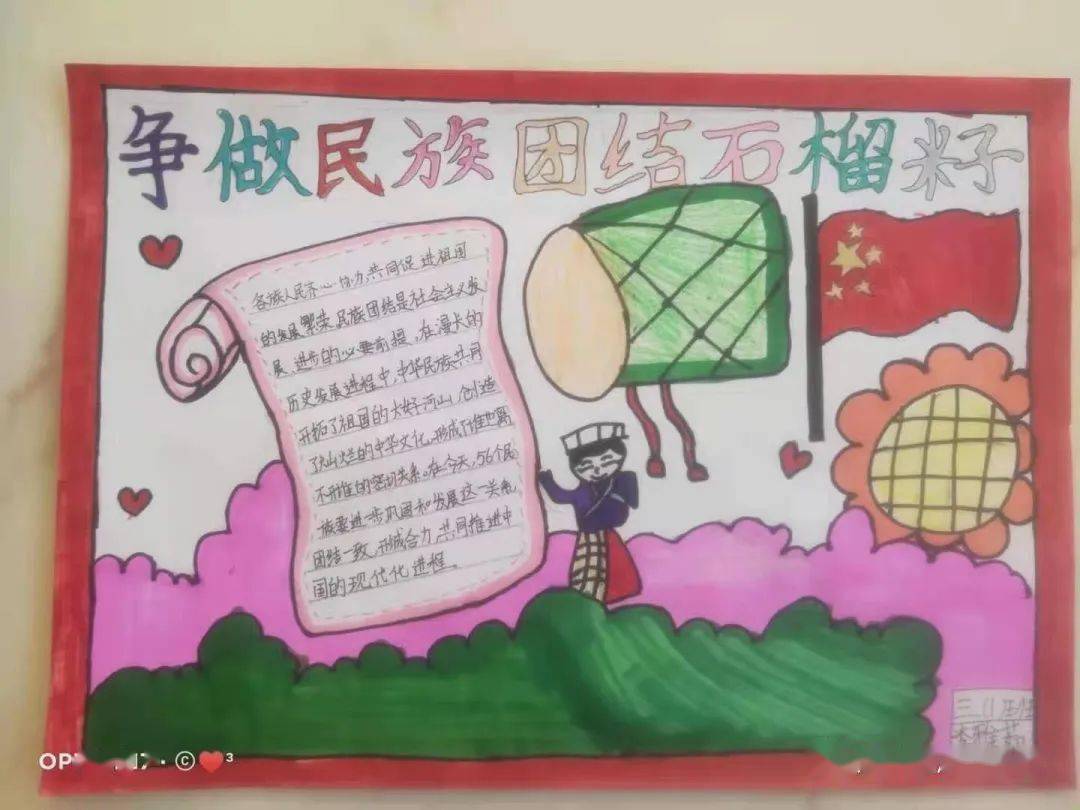 争做民族团结石榴籽
各族人民齐心协力,共同促进祖国
的发展繁荣.民族团结是社会主义发
展、进步的必要前提,在漫长的
历史发展进程中,中华民族共同
开拓了祖国的大好河山,创造
了灿烂的中华文化,形成了谁也离
不开谁的密切关系。在今天,56个民
族要进一步巩固和发展这一关系
团结一致,形成合力,共同推进中
国的现代化进程。
三